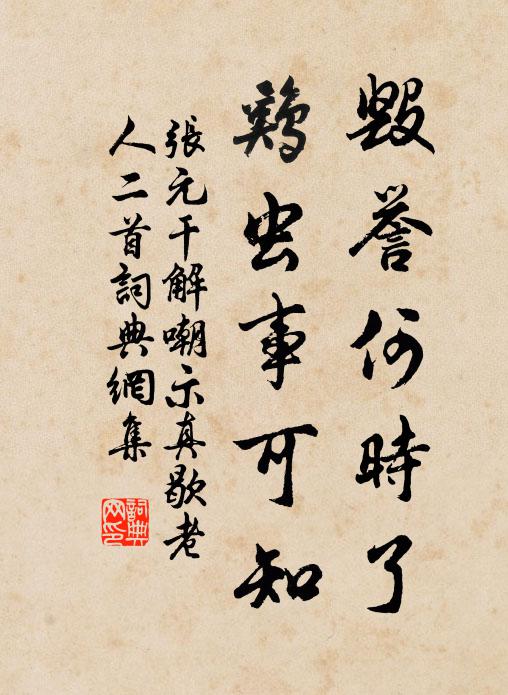 毀譽何時了
鷄虫事可知
張元干解嘲示真歇老
人二首詞典網集
詞典
网印